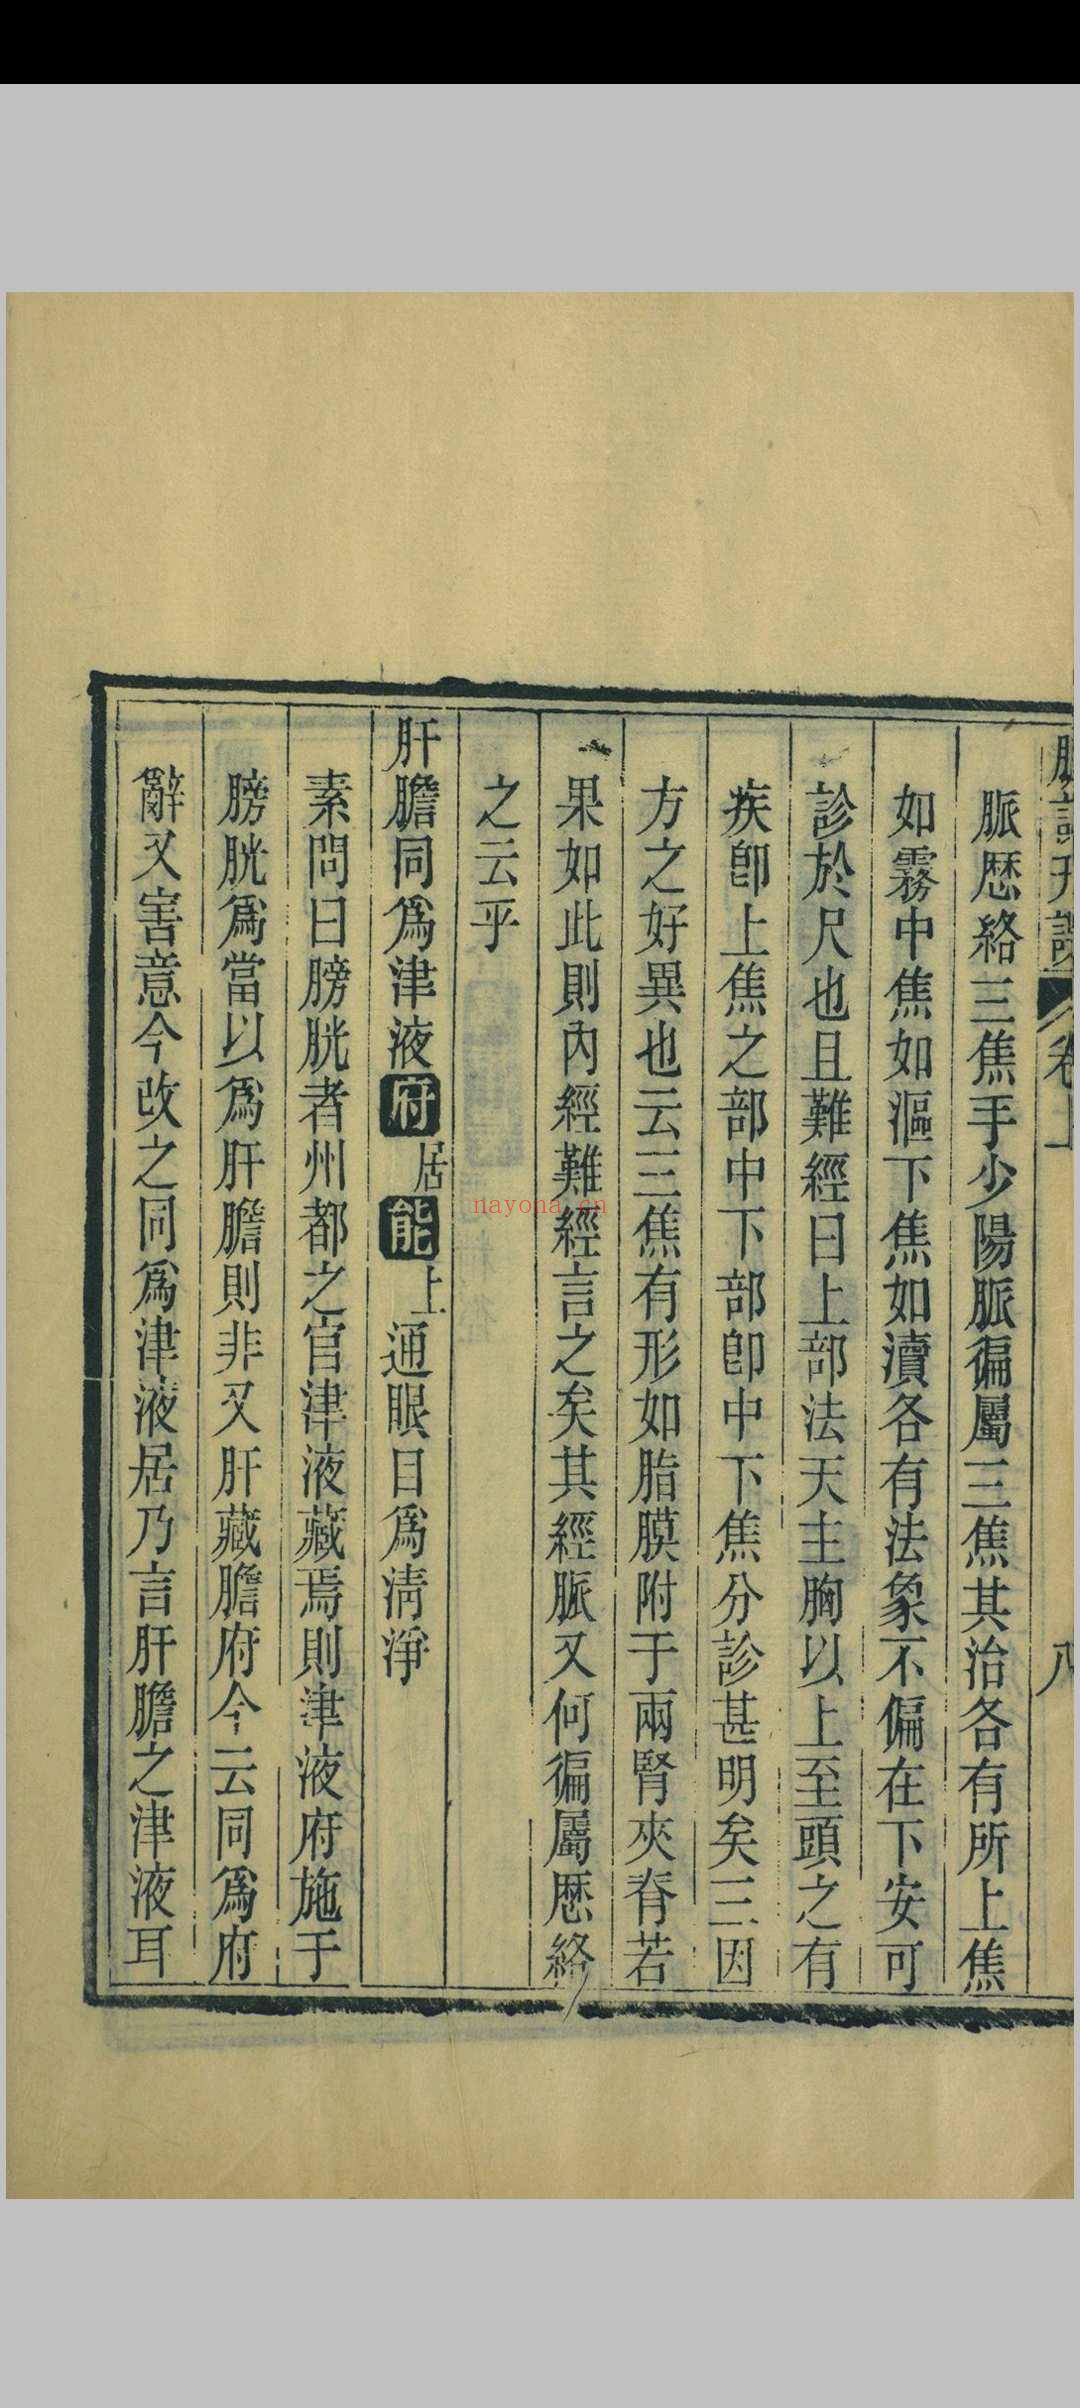 脈訣刋誤 卷上 八
脈歴絡三焦手少陽脈徧屬三焦其治各有所上焦
如霧中焦如漚下焦如瀆各有法象不偏在下安可
診於尺也且難經曰上部法天主胸以上至頭之有
疾卽上焦之部中下部卽中下焦分診甚明矣三因
方之好異也云三焦有形如脂膜附于兩腎夾脊若
果如此則內經難經言之矣其經脈又何徧屬歴絡
之云乎
肝膽同爲津液府居能上通眼目爲淸淨
素問曰膀胱者州都之官津液藏焉則津液府施于
膀胱爲當以爲肝膽則非又肝藏膽府今云同爲府
辭又害意今改之同爲津液居乃言肝膽之津液耳
nayona.cn